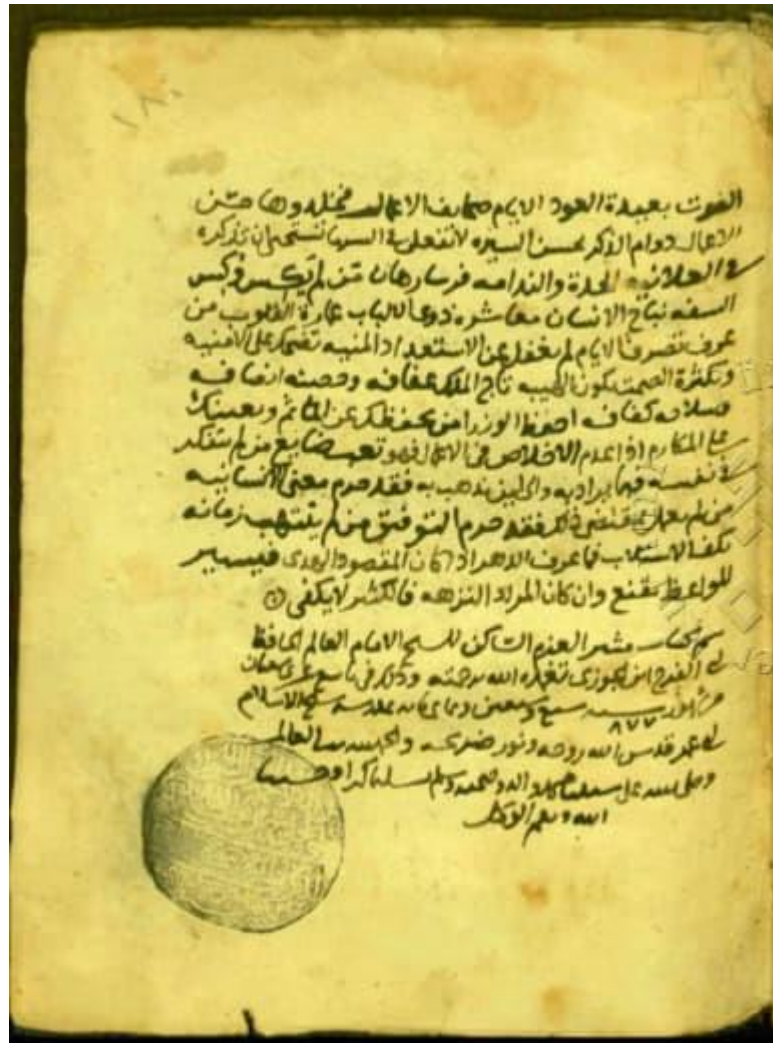 ١٨٠
الفوت بعيدة العود الايام صحايف الاعمال فخلدوها حسن
الاعمال دوام الذكر بحسن السيره لا تفعل في السر ما تستحي ان تذكره
في العلانيه الحدة والندامه فرسا رهان من لم يكس وكس
السفه نباح الانسان معاشره ذوي الالباب عمارة القلوب من
عرف تصرف الايام لم يغفل عن الاستعداد المنيه تضحك على الامنيه
وبكثرة الصمت تكون الهيبه تاج الملك عفافه وحصنه انصافه
وسلاحه كفافه احفظ الوزرا من يحفظك عن المآثم ويعينك
على المكارم اذا عدم الاخلاص في الاعمال فهو تعب ضايع من لم يتفكر
في نفسه فيما يراد به والى اين يذهب به فقد حرم معنى الانسانيه
من لم يعمل بمقتضى ذلك فقد حرم التوفيق من لم ينتهب زمانه
بكف الاستلاب فما عرف الدهر اذا كان المقصود الهدى فيسير
المواعظ يقنع وان كان المراد النزهه فالكثير لا يكفي
تم كتاب مثير العزم الساكن للشيخ الامام العالم الحافظ
ابي الفرج ابن الجوزي تغمده الله برحمته وذلك في تاسع عشري
سنه سبع وسبعين وثماني مايه بمدرسة شيخ الاسلام
٨٧٧
ابي عمر قدس الله روحه ونور ضريحه والحمد لله رب العالمين
وصلى الله على سيدنا محمد واله وصحبه وسلم تسليما كثيرا وحسبنا
الله ونعم الوكيل